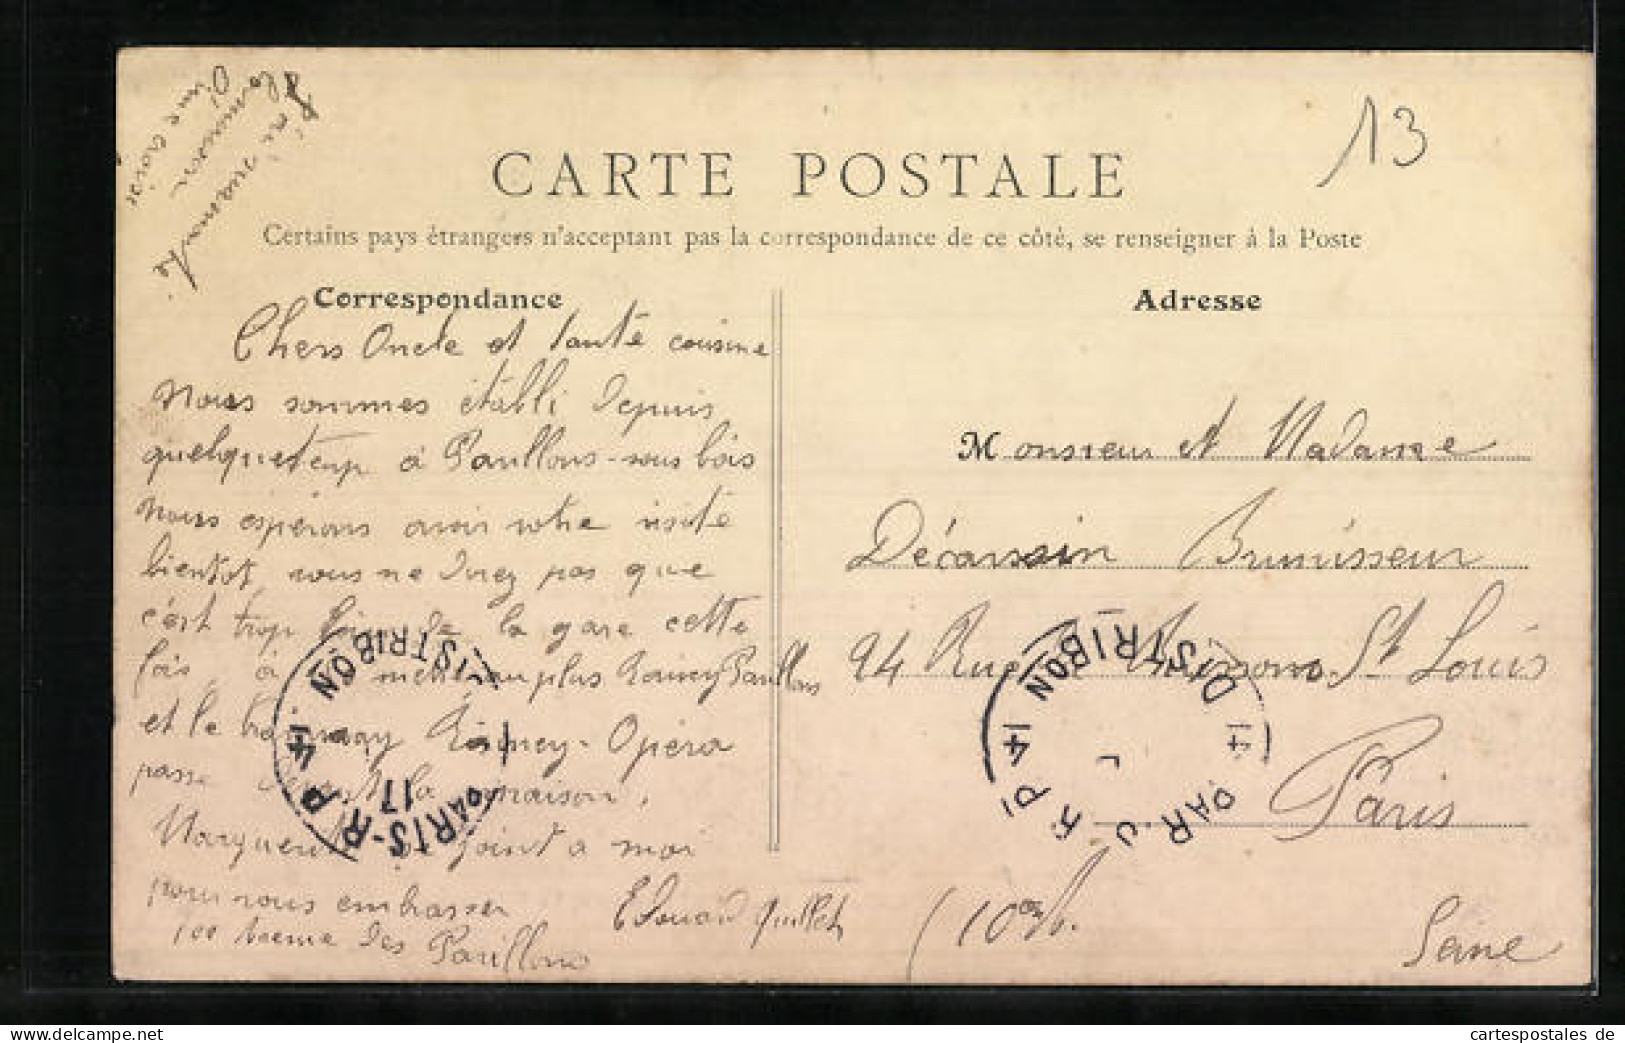 J'ai demandé
la
d'une croix
13
CARTE POSTALE
Certains pays étrangers n'acceptant pas la correspondance de ce côté, se renseigner à la Poste
Correspondance
Chers Oncle et tante cousine
Nous sommes établi depuis
quelquetemp à Pavillons-sous bois
nous espérons avoir votre visite
bientot, vous ne direz pas que
c'est trop loin de la gare cette
fois, à metre au plus Raincy Pavillons
et le tramway Raincy-Opéra
passe devant la maison,
Marguerite se joint a moi
pour vous embrasser
Edouard Quillet
100 des Pavillons
Adresse
Monsieur et Madame
Décarsin Brunisseur
94 Rue St Louis
Paris
(10e
Seine
DISTRIBON
14
PARIS-R.P
17
DISTRIBON
14
14
PAR
cartespostales de